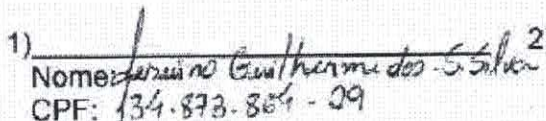 1) 2
Nome: Guilherme dos S. Silva
CPF: 134.873.864-29